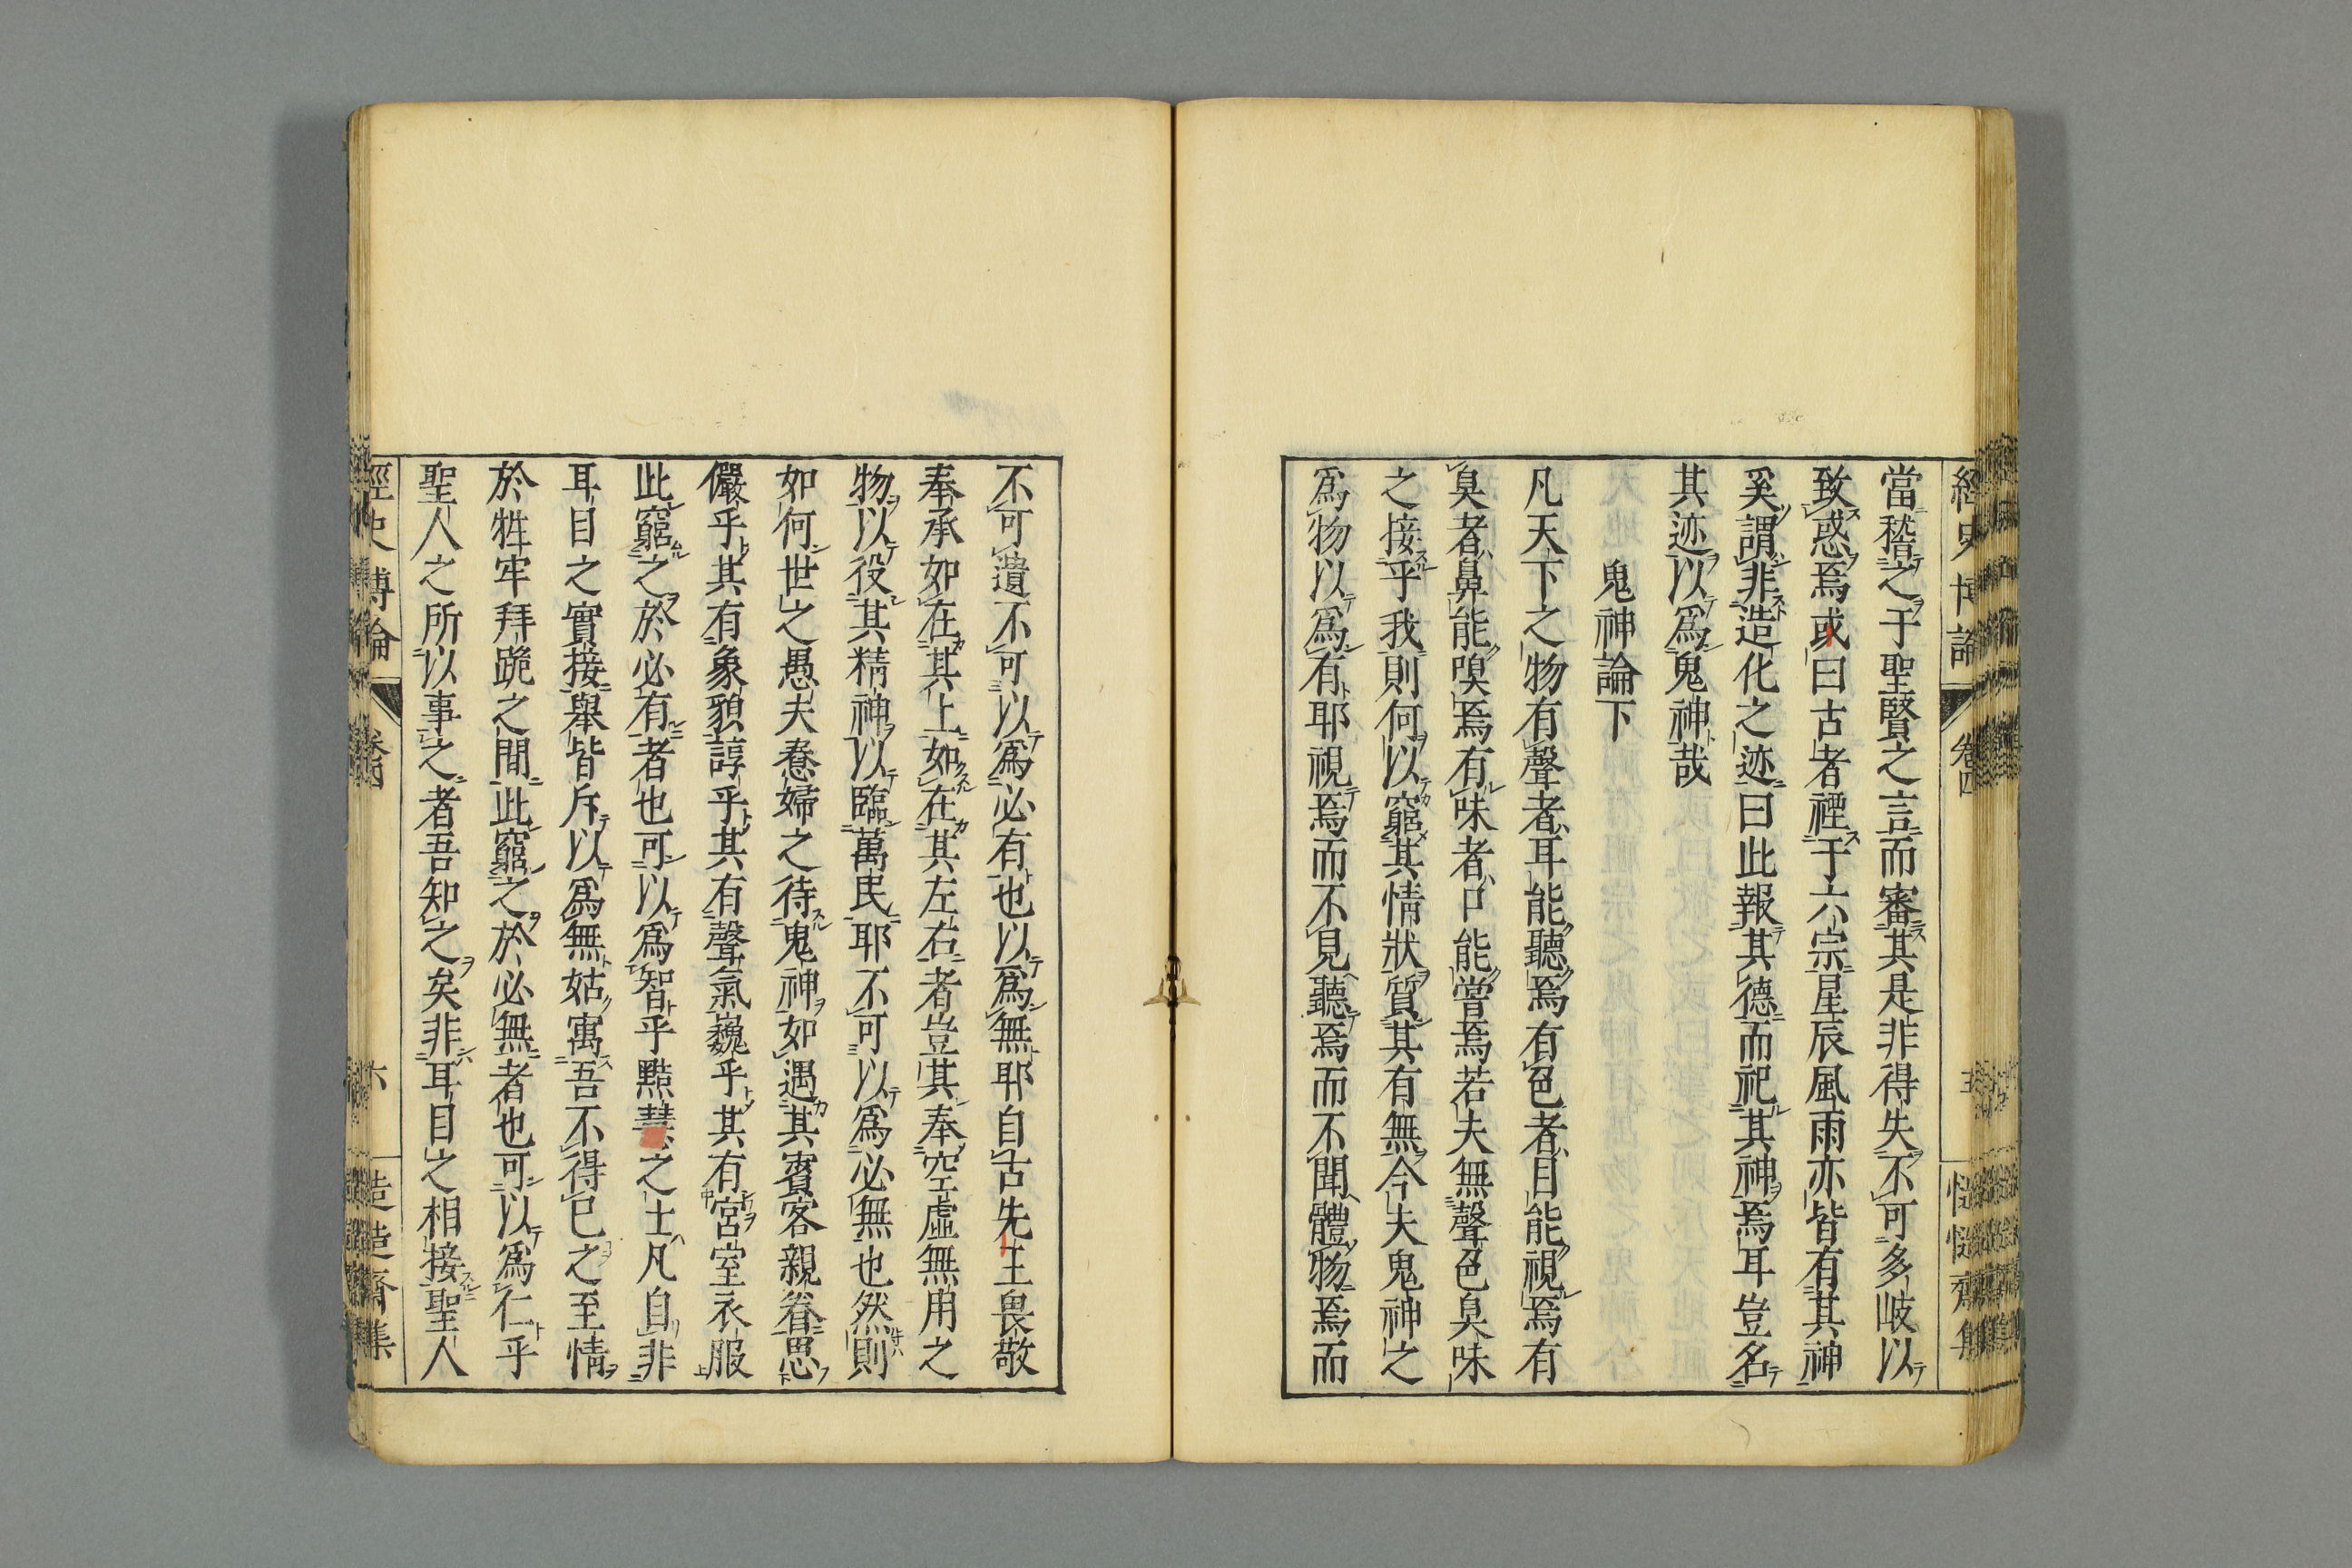 經史博論 卷四 五 慥慥齋集
當稽之于聖賢之言而審其是非得失不可多岐以
致惑焉或曰古者禋于六宗星辰風雨亦皆有其神
奚謂非造化之迹曰此報其德而祀其神焉耳豈名
其迹以爲鬼神哉
鬼神論下
凡天下之物有聲者耳能聽焉有色者目能視焉有
臭者鼻能嗅焉有味者口能嘗焉若夫無聲色臭味
之接乎我則何以窮其情狀質其有無今夫鬼神之
爲物以爲有耶視焉而不見聽焉而不聞體物焉而
不可遺不可以爲必有也以爲無耶自古先王畏敬
奉承如在其上如在其左右者豈其奉空虛無用之
物以役其精神以臨萬民耶不可以爲必無也然則
如何世之愚夫惷婦之待鬼神如遇其賓客親眷思
儼乎其有象貌諄乎其有聲氣巍乎其有宮室衣服
此窮之於必有者也可以爲智乎黠慧之士凡自非
耳目之實接舉皆斥以爲無姑寓吾不得已之至情
於牲牢拜跪之間此窮之於必無者也可以爲仁乎
聖人之所以事之者吾知之矣非耳目之相接聖人
經史博論 卷四 六 慥慥齋集